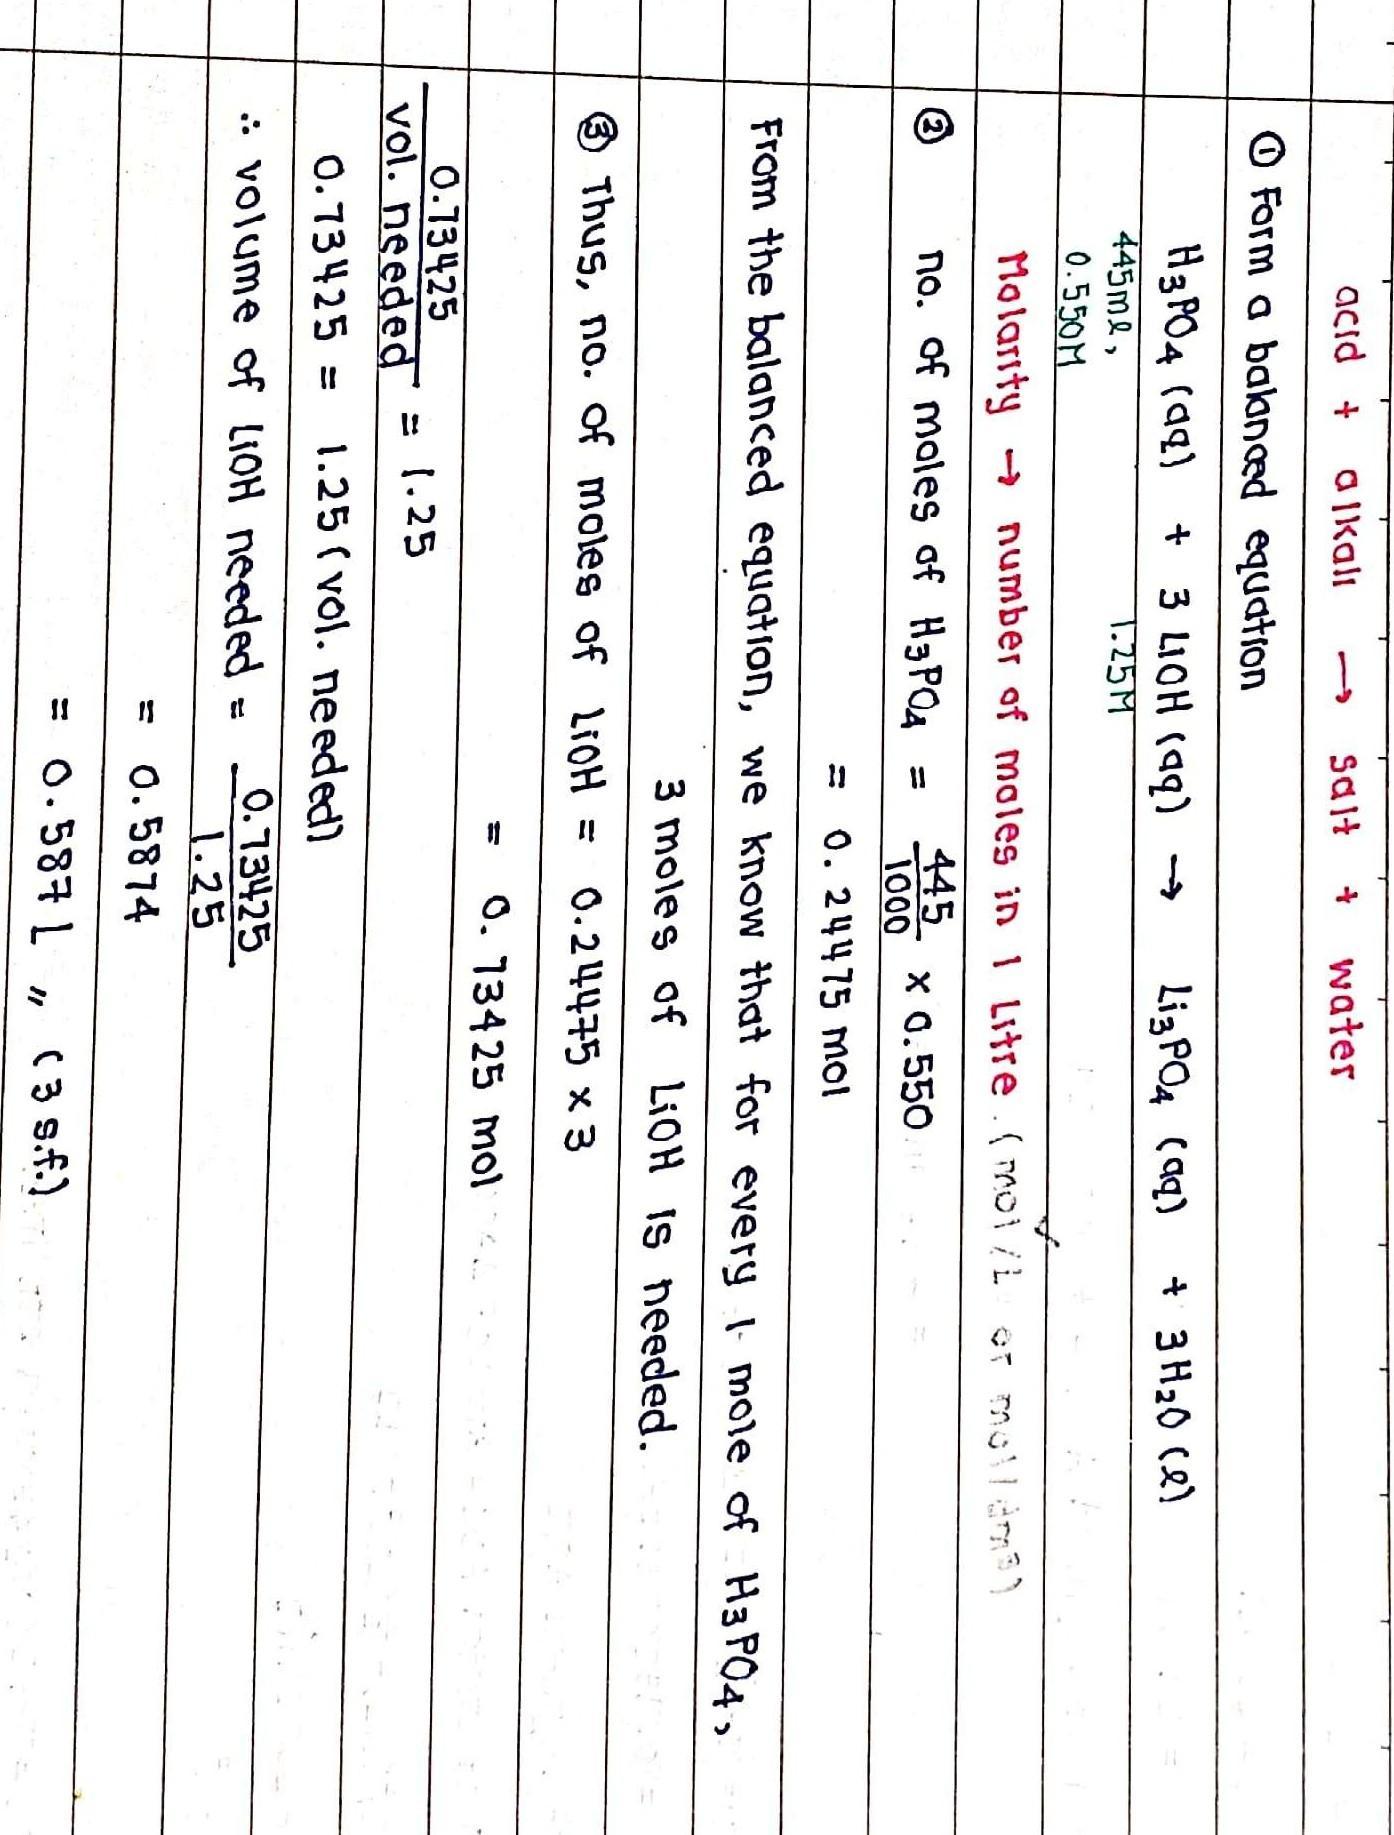 acid + alkali → salt + water
① Form a balanced equation
H₃PO₄ (aq) + 3 LiOH (aq) → Li₃PO₄ (aq) + 3H₂O (ℓ)
445mℓ, 1.25M
0.550M
Molarity → number of moles in 1 Litre. (mol/L or mol/dm³)
② no. of moles of H₃PO₄ = 445/1000 × 0.550
= 0.24475 mol
From the balanced equation, we know that for every 1 mole of H₃PO₄,
3 moles of LiOH is needed.
③ Thus, no. of moles of LiOH = 0.24475 × 3
= 0.73425 mol
0.73425/vol. needed = 1.25
0.73425 = 1.25 (vol. needed)
∴ volume of LiOH needed = 0.73425/1.25
= 0.5874
= 0.587 L ,, (3 s.f.)